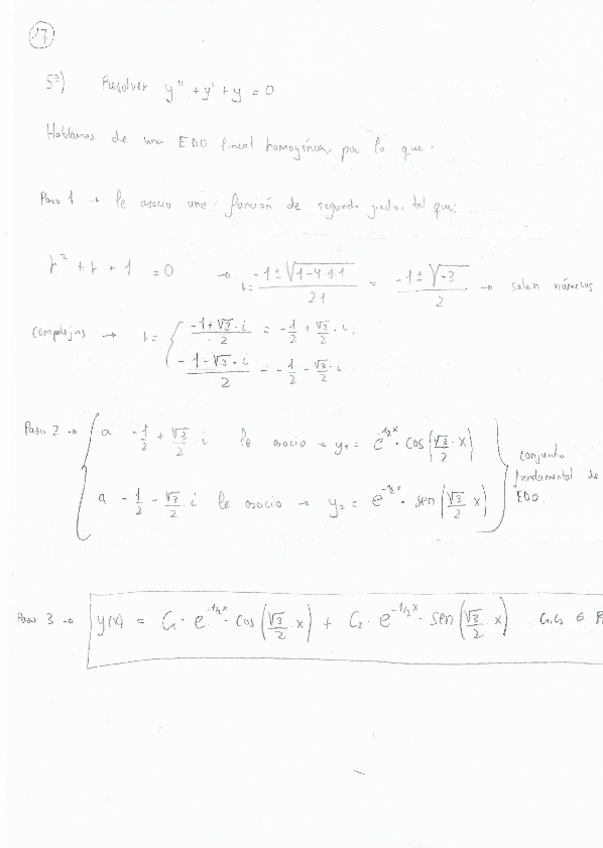 17
5º) Resolver y'' + y' + y = 0
Hablamos de una EDO lineal homogénea, por lo que:
Paso 1 → le asocio una función de segundo grado, tal que:
r² + r + 1 = 0 → r = (-1 ± √(1-4·1·1))/(2·1) = (-1 ± √-3)/2 → salen números
complejos → r = { (-1+√3·i)/2 = -1/2 + √3/2 · i
(-1-√3·i)/2 = -1/2 - √3/2 · i
Paso 2 → { a -1/2 + √3/2 · i le asocio → y₁ = e^(-1/2 x) · cos(√3/2 · x)
a -1/2 - √3/2 · i le asocio → y₂ = e^(-1/2 x) · sen(√3/2 · x) }
conjunto
fundamental de
EDO.
Paso 3 → y(x) = C₁ · e^(-1/2 x) · cos(√3/2 · x) + C₂ · e^(-1/2 x) · sen(√3/2 · x) C₁,C₂ ∈ R